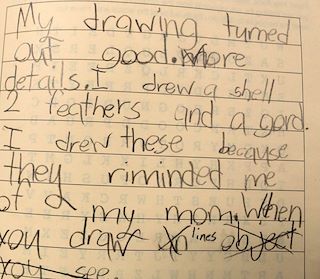 My drawing turned
out good. More
details. I drew a shell
2 feathers and a gord.
I drew these because
they riminded me
of my mom. When
you draw lines object
you see.